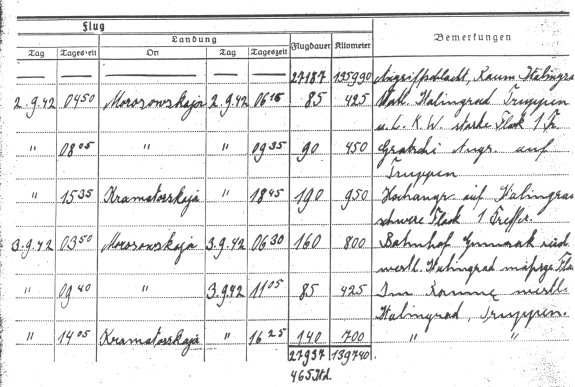 Flug
Landung
Bemerkungen
Tag Tageszeit On Tag Tageszeit Flugdauer Kilometer
27187 135990 Angriffschlacht, Raum Stalingrad
2.9.42 04⁵⁰ Morosowskaja 2.9.42 06¹⁵ 85 425 Stalingrad Truppen
u. L.K.W. starke Flak 1 Tr.
" 08⁰⁵ " " 09³⁵ 90 450 Angr. auf
Truppen
" 15³⁵ Kramatorskaja " 18⁴⁵ 190 950 Hochangr. auf Stalingrad
schwere Flak 1 Treffer.
3.9.42 03⁵⁰ Morosowskaja 3.9.42 06³⁰ 160 800 Bahnhof Gumrak süd
westl. Stalingrad Fla
" 09⁴⁰ " 3.9.42 11⁰⁵ 85 425 Im Raume westl.
Stalingrad, Truppen.
" 14⁰⁵ Kramatorskaja " 16²⁵ 140 700 " "
27937 139740
465 Std.